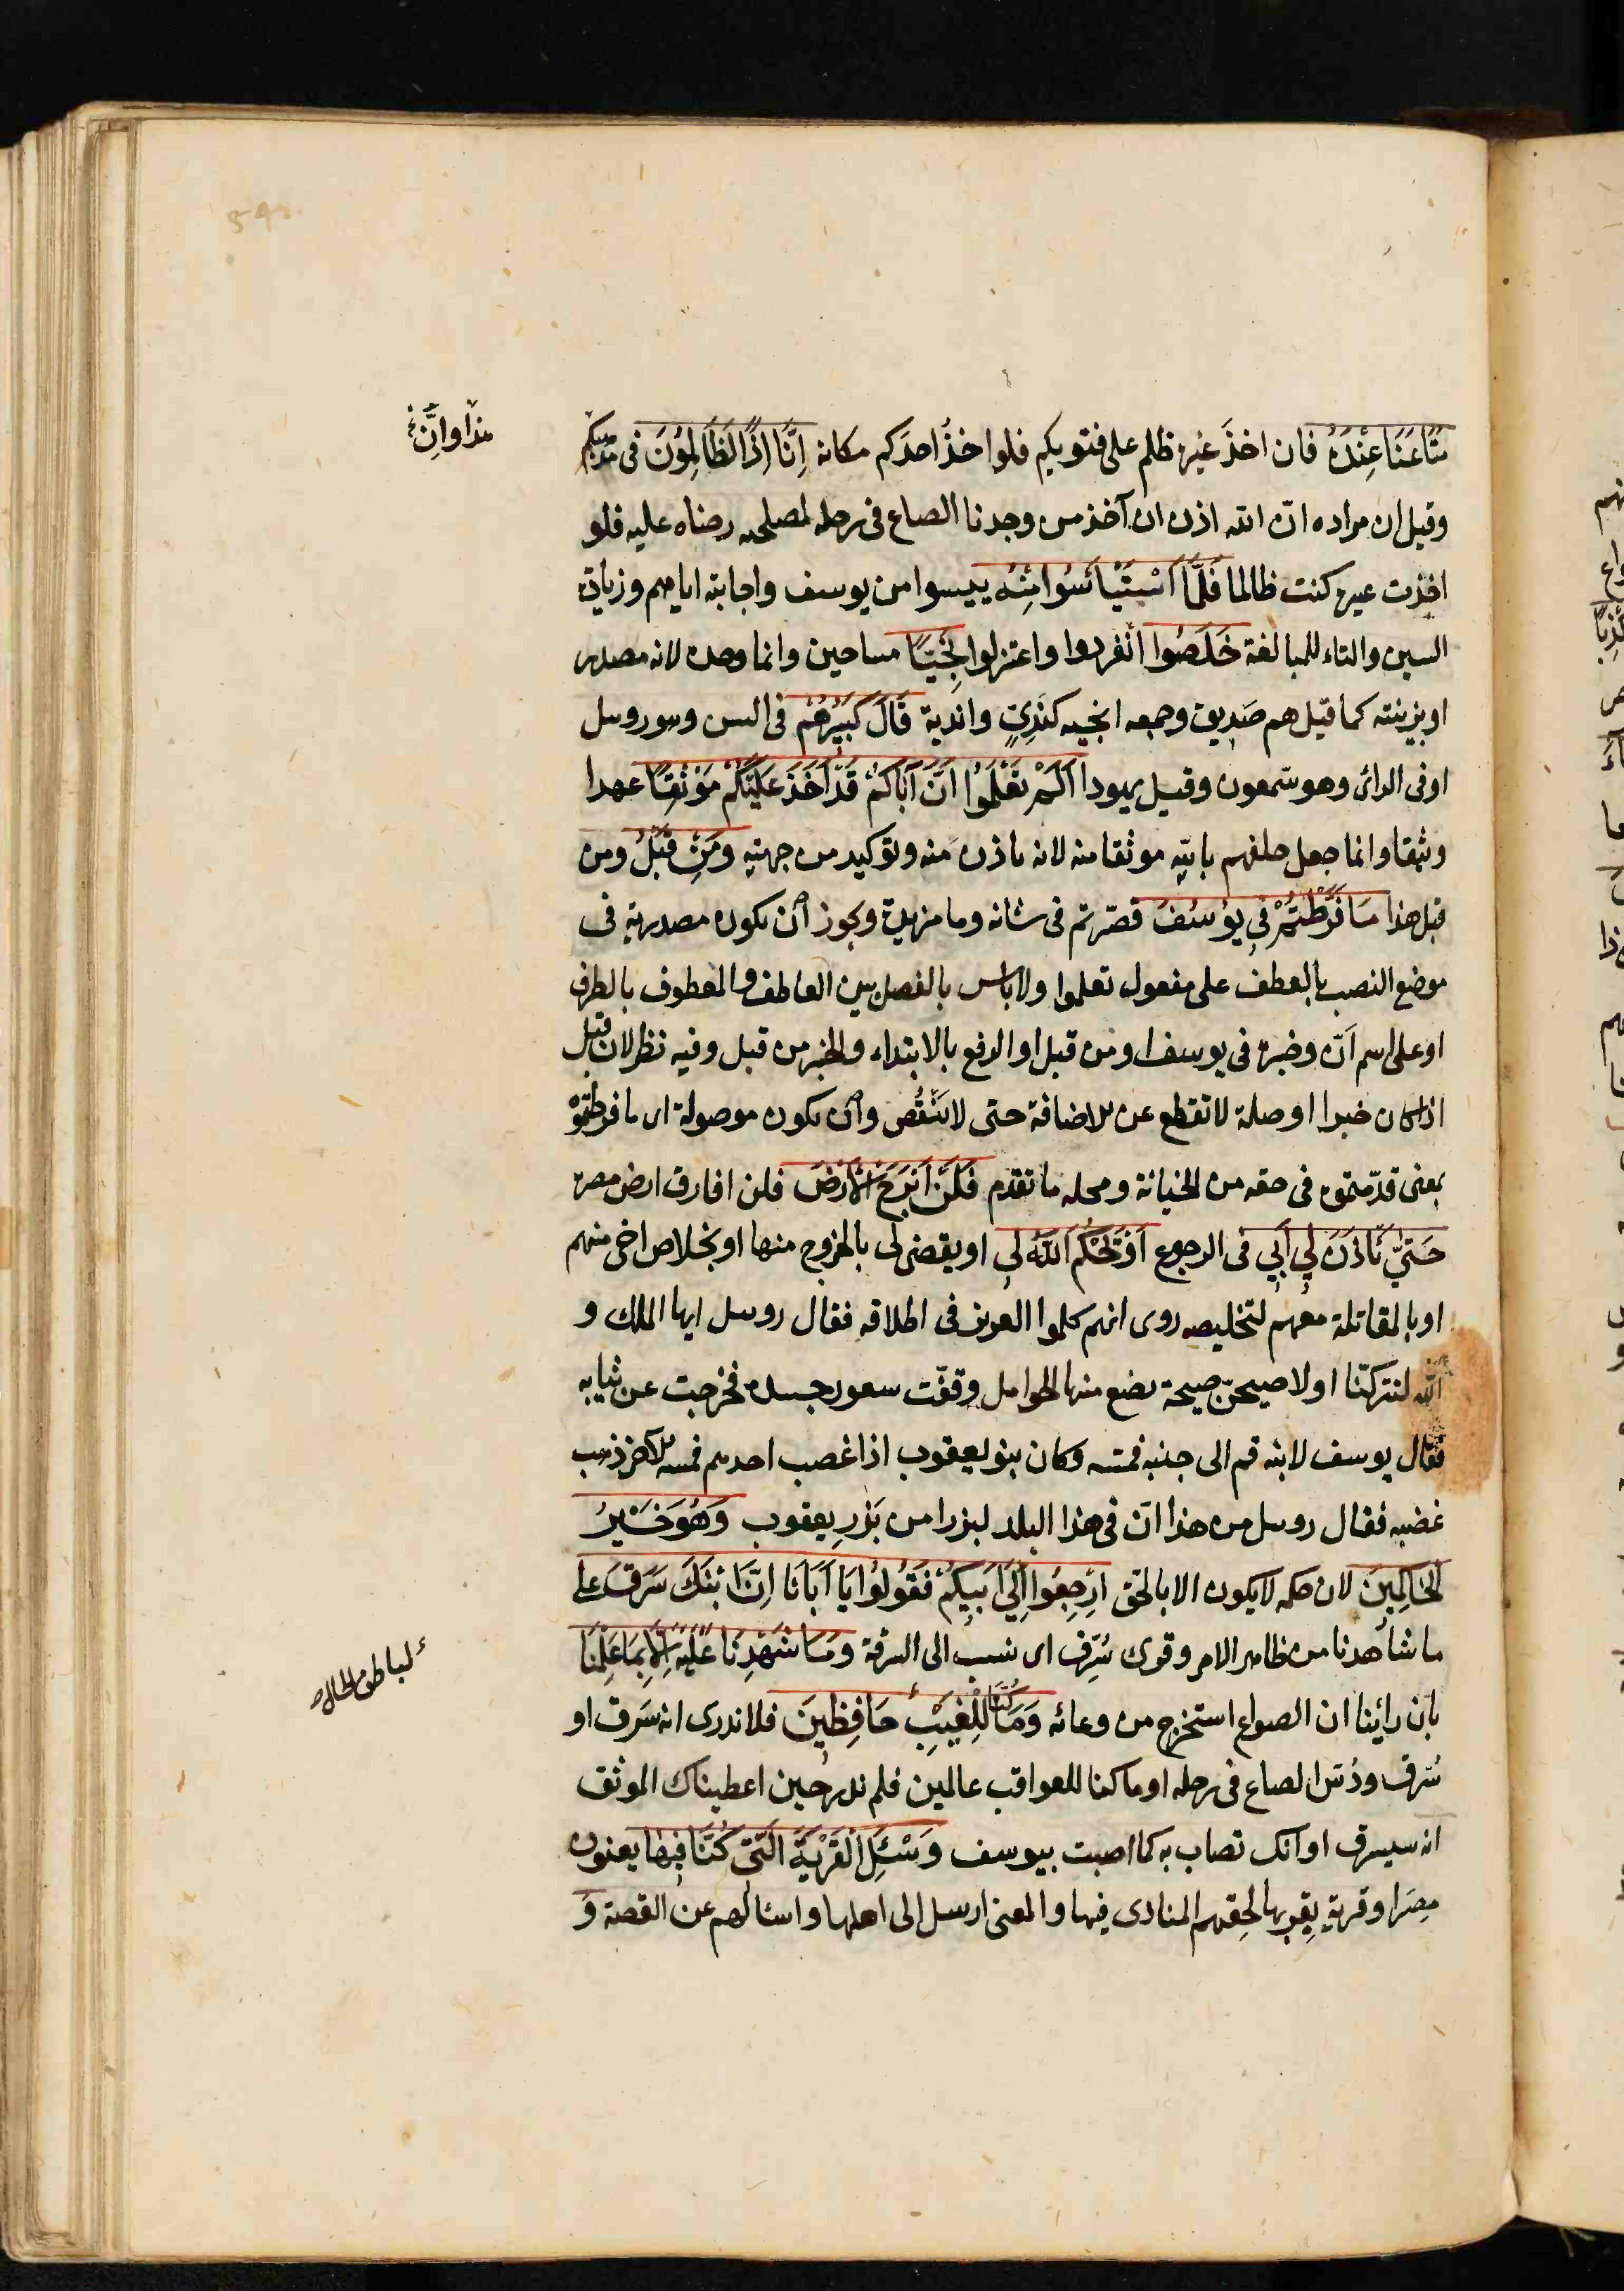 مَتَاعَنَا عِنْدَهُ فان اخذَ غيره ظلم على فتويكم فلو اخذُ احدَكم مكانه اِنَّا اِذًا لَظَالِمُونَ فى مذهبكم
هذا وانّ
وقيل ان مراده انّ الله اذن ان آخذ من وجدنا الصاع فى رحله لمصلحه رضاه عليه فلو
اخذت غيره كنت ظالما فَلَمَّا اسْتَيْاَسُوا مِنْهُ يئسوا من يوسف واجابته اياهم وزيادة
السين والتاء للمبالغة خَلَصُوا انفردوا واعتزلوا نَجِيًّا متناجين وانما وحده لانه مصدر
او بزينته كما قيل هم صَديق وجمعه انجيه كنَدِيٍ واندية قَالَ كَبِيرُهُمْ فى السن وهو روبيل
او فى الرائ وهو شمعون وقيل يهودا اَلَمْ تَعْلَمُوا اَنَّ اَبَاكُمْ قَدْ اَخَذَ عَلَيْكُمْ مَوْثِقًا عهدا
وثيقا وانما جعل حلفهم بالله موثقا منه لانه باذن منه وتوكيد من جهته وَمِنْ قَبْلُ ومن
قبل هذا مَا فَرَّطْتُمْ فِي يُوسُفَ قصّرتم فى شانه وما مزيدة ويجوز اَن تكون مصدرية فى
موضع النصب بالعطف على مفعول تعلموا ولا باس بالفصل بين العاطف والمعطوف بالظرف
او على اسم اَنّ وخبره فى يوسف او من قبل او الرفع بالابتداء والخبر من قبل وفيه نظر لان قبل
اذا كان خبرا او صلة لا تقطع عن الاضافة حتى لا يَنْقُص واَن تكون موصولة اى ما فرطتموْ
بمعنى قدّمتموه فى حقه من الخيانة ومحله ما تقدم فَلَنْ اَبْرَحَ الْاَرْضَ فلن افارق ارض مصر
حَتَّىٰ يَاْذَنَ لِي اَبِي فى الرجوع اَوْ يَحْكُمَ اللّٰهُ لِي او يقضى لى بالخروج منها او بخلاص اخى منهم
او بالمقاتلة معهم لتخليصه روى انهم كلموا العزيز فى اطلاقه فقال روبيل ايها الملك و
الله لنتركنا او لاصيحنّ صيحة تضع منها الحوامل وقفّت شعور جسده فخرجت عن ثيابه
فقال يوسف لابنه قم الى جنبه فمسه وكان بنو يعقوب اذا غصب احدهم فمسه الآخر ذهب
غضبه فقال روبيل من هذا انّ فى هذا البلد لبزرا من بَزْرِ يعقوب وَهُوَ خَيْرُ
الْحَاكِمِينَ لان حكمه لا يكون الا بالحق اِرْجِعُوا اِلَىٰ اَبِيكُمْ فَقُولُوا يَا اَبَانَا اِنَّ ابْنَكَ سَرَقَ على
ما شاهدنا من ظاهر الامر وقرى سُرِّق اى نسب الى السرقة وَمَا شَهِدْنَا عَلَيْهِ اِلَّا بِمَا عَلِمْنَا
بان رائينا ان الصواع استخرج من وعائه وَمَا كُنَّا لِلْغَيْبِ حَافِظِينَ فلا ندرى انه سَرق او
لباطن الحال
سُرّق ودُسّ الصاع فى رحله او ما كنا للعواقب عالمين فلم ندر حين اعطيناك الموثق
انه سيسرق او انّك تصاب به كما اصبت بيوسف وَسْئَلِ الْقَرْيَةَ الَّتِي كُنَّا فِيهَا يعنون
مِصرَ او قرية بقربها لحِقهم المنادى فيها والمعنى ارسل الى اهلها واسالهم عن القصة وَ